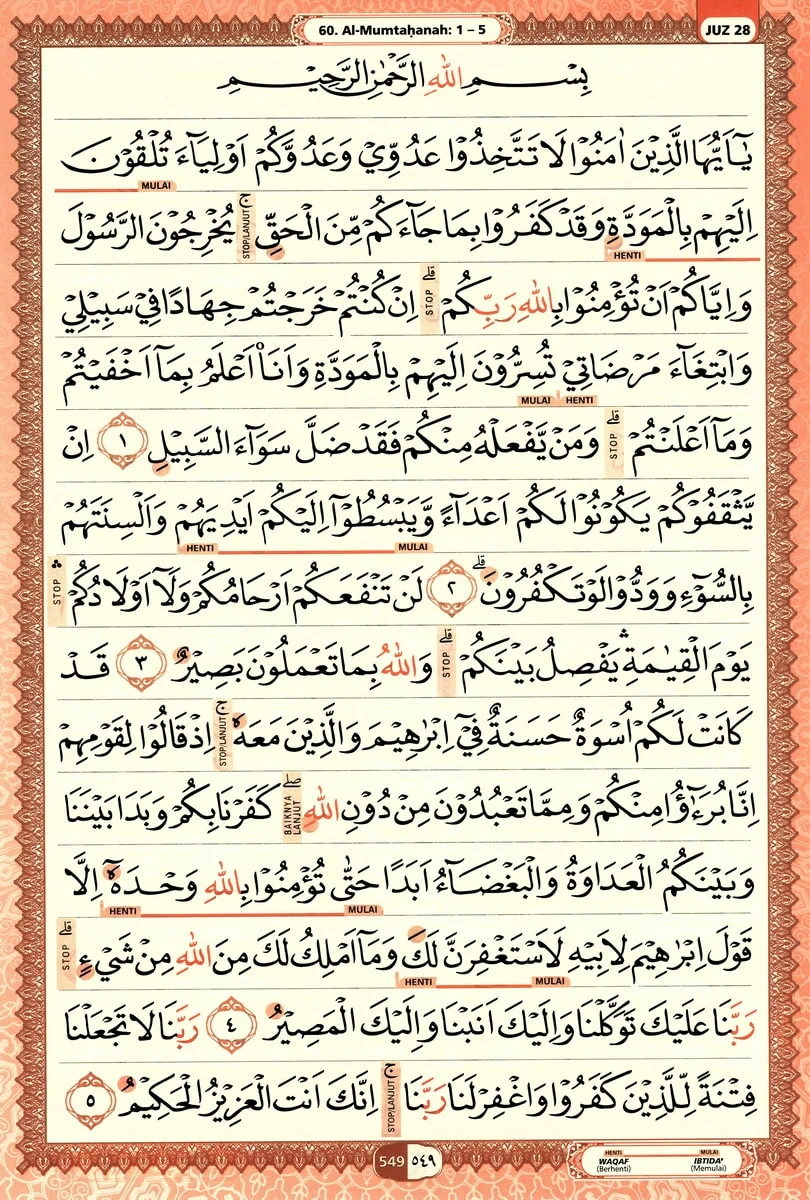 60. Al-Mumtaḥanah: 1 – 5
JUZ 28
بِسْمِ اللّٰهِ الرَّحْمٰنِ الرَّحِيْمِ
يٰٓاَيُّهَا الَّذِيْنَ اٰمَنُوْا لَا تَتَّخِذُوْا عَدُوِّيْ وَعَدُوَّكُمْ اَوْلِيَاۤءَ تُلْقُوْنَ
MULAI
اِلَيْهِمْ بِالْمَوَدَّةِ وَقَدْ كَفَرُوْا بِمَا جَاۤءَكُمْ مِّنَ الْحَقِّۚ STOP/LANJUT يُخْرِجُوْنَ الرَّسُوْلَ
HENTI
وَاِيَّاكُمْ اَنْ تُؤْمِنُوْا بِاللّٰهِ رَبِّكُمْۗ STOP اِنْ كُنْتُمْ خَرَجْتُمْ جِهَادًا فِيْ سَبِيْلِيْ
وَابْتِغَاۤءَ مَرْضَاتِيْ تُسِرُّوْنَ اِلَيْهِمْ بِالْمَوَدَّةِ وَاَنَا۠ اَعْلَمُ بِمَآ اَخْفَيْتُمْ
HENTI MULAI
وَمَآ اَعْلَنْتُمْۗ STOP وَمَنْ يَّفْعَلْهُ مِنْكُمْ فَقَدْ ضَلَّ سَوَاۤءَ السَّبِيْلِ ١ اِنْ
يَّثْقَفُوْكُمْ يَكُوْنُوْا لَكُمْ اَعْدَاۤءً وَّيَبْسُطُوْٓا اِلَيْكُمْ اَيْدِيَهُمْ وَاَلْسِنَتَهُمْ
MULAI HENTI
بِالسُّوْۤءِ وَوَدُّوْا لَوْ تَكْفُرُوْنَۗ ٢ لَنْ تَنْفَعَكُمْ اَرْحَامُكُمْ وَلَآ اَوْلَادُكُمْ ۛ STOP
يَوْمَ الْقِيٰمَةِ ۛ يَفْصِلُ بَيْنَكُمْۗ STOP وَاللّٰهُ بِمَا تَعْمَلُوْنَ بَصِيْرٌ ٣ قَدْ
كَانَتْ لَكُمْ اُسْوَةٌ حَسَنَةٌ فِيْٓ اِبْرٰهِيْمَ وَالَّذِيْنَ مَعَهٗۚ STOP/LANJUT اِذْ قَالُوْا لِقَوْمِهِمْ
اِنَّا بُرَءٰۤؤُا مِنْكُمْ وَمِمَّا تَعْبُدُوْنَ مِنْ دُوْنِ اللّٰهِۖ BAIKNYA LANJUT كَفَرْنَا بِكُمْ وَبَدَا بَيْنَنَا
وَبَيْنَكُمُ الْعَدَاوَةُ وَالْبَغْضَاۤءُ اَبَدًا حَتّٰى تُؤْمِنُوْا بِاللّٰهِ وَحْدَهٗٓ اِلَّا
MULAI HENTI
قَوْلَ اِبْرٰهِيْمَ لِاَبِيْهِ لَاَسْتَغْفِرَنَّ لَكَ وَمَآ اَمْلِكُ لَكَ مِنَ اللّٰهِ مِنْ شَيْءٍۗ STOP
MULAI HENTI
رَبَّنَا عَلَيْكَ تَوَكَّلْنَا وَاِلَيْكَ اَنَبْنَا وَاِلَيْكَ الْمَصِيْرُ ٤ رَبَّنَا لَا تَجْعَلْنَا
فِتْنَةً لِّلَّذِيْنَ كَفَرُوْا وَاغْفِرْ لَنَا رَبَّنَاۚ STOP/LANJUT اِنَّكَ اَنْتَ الْعَزِيْزُ الْحَكِيْمُ ٥
549 ٥٤٩
HENTI MULAI
WAQAF IBTIDA'
(Berhenti) (Memulai)